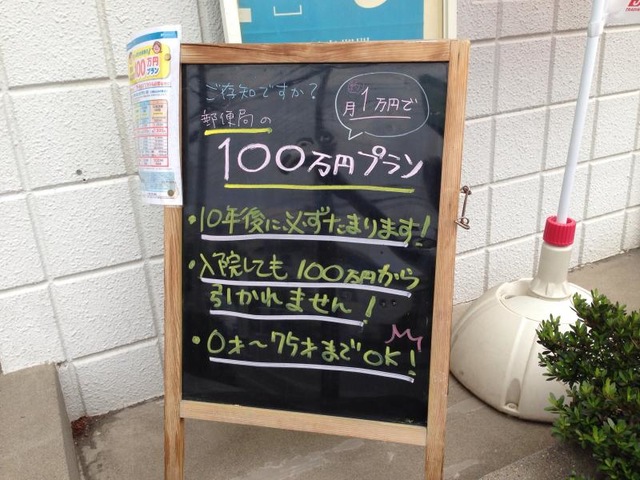 ご存知ですか?
郵便局の
約
月1万円で
100万円プラン
・10年後に必ずたまります!
・入院しても100万円から
引かれません!
・0才〜75才までOK!
100万円
プラン